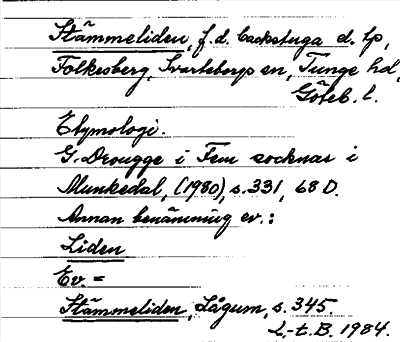 Stämmeliden, f.d. backstuga d. tp,
Folkesberg, Svarteborgs sn, Tunge hd,
Göteb. l.
Etymologi.
G. Drougge i Fem socknar i
Munkedal, (1980), s. 331, 68 D.
Annan benämning ev.:
Liden
Ev. =
Stämmeliden, Lågum, s. 345.
L-t. B. 1984.